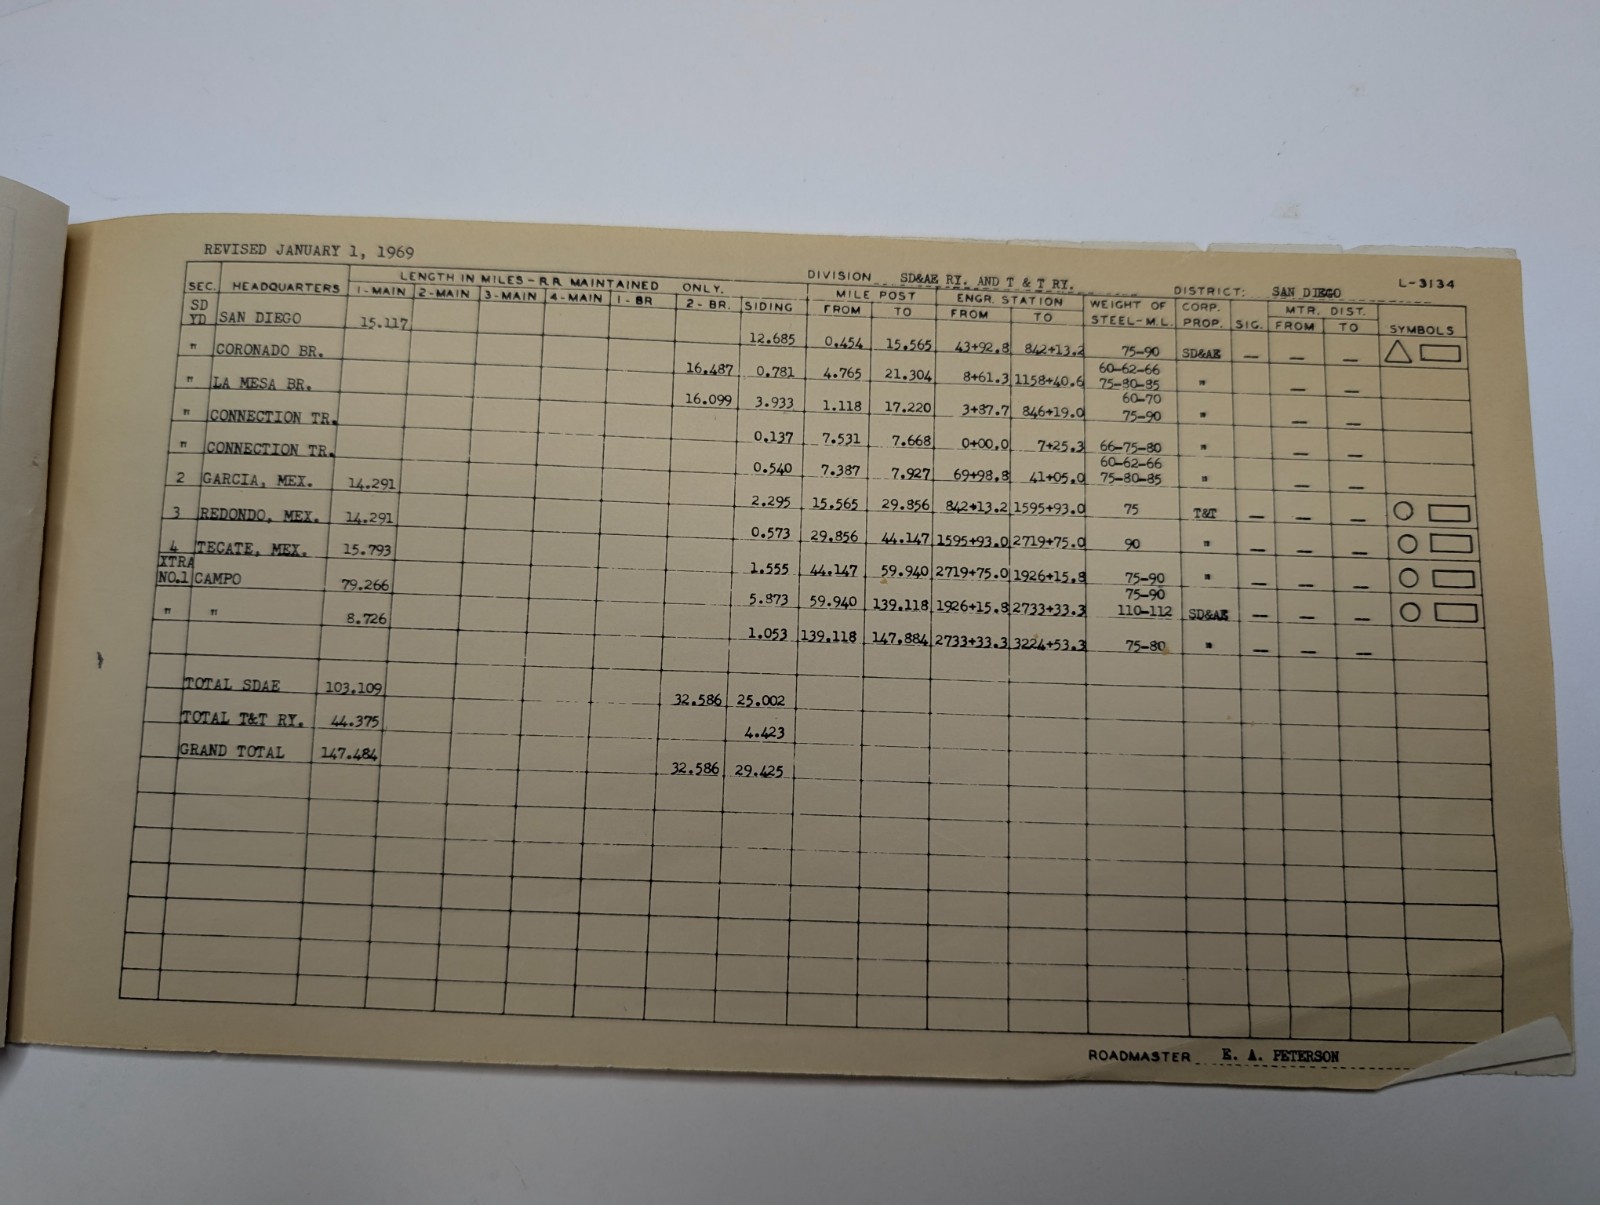 REVISED JANUARY 1, 1969
DIVISION SD&AE RY. AND T & T RY. DISTRICT: SAN DIEGO L-3134
SEC. HEADQUARTERS LENGTH IN MILES-R.R. MAINTAINED ONLY. MILE POST ENGR. STATION WEIGHT OF STEEL-M.L. CORP. PROP. SIG. MTR. DIST. SYMBOLS
1-MAIN 2-MAIN 3-MAIN 4-MAIN 1-BR 2-BR. SIDING FROM TO FROM TO FROM TO
SD YD SAN DIEGO 15.117 12.685 0.454 15.565 43+92.8 842+13.2 75-90 SD&AE — — —
" CORONADO BR. 16.487 0.781 4.765 21.304 8+61.3 1158+40.6 60-62-66 75-80-85 " — —
" LA MESA BR. 16.099 3.933 1.118 17.220 3+87.7 846+19.0 60-70 75-90 " — —
" CONNECTION TR. 0.137 7.531 7.668 0+00.0 7+25.3 66-75-80 " — —
" CONNECTION TR. 0.540 7.387 7.927 69+98.8 41+05.0 60-62-66 75-80-85 " — —
2 GARCIA, MEX. 14.291 2.295 15.565 29.856 842+13.2 1595+93.0 75 T&T — — —
3 REDONDO, MEX. 14.291 0.573 29.856 44.147 1595+93.0 2719+75.0 90 " — — —
4 TECATE, MEX. 15.793 1.555 44.147 59.940 2719+75.0 1926+15.8 75-90 " — — —
XTRA NO.1 CAMPO 79.266 5.873 59.940 139.118 1926+15.8 2733+33.3 75-90 110-112 SD&AE — — —
" " 8.726 1.053 139.118 147.884 2733+33.3 3224+53.3 75-80 " — — —
TOTAL SDAE 103.109 32.586 25.002
TOTAL T&T RY. 44.375 4.423
GRAND TOTAL 147.484 32.586 29.425
ROADMASTER E. A. PETERSON